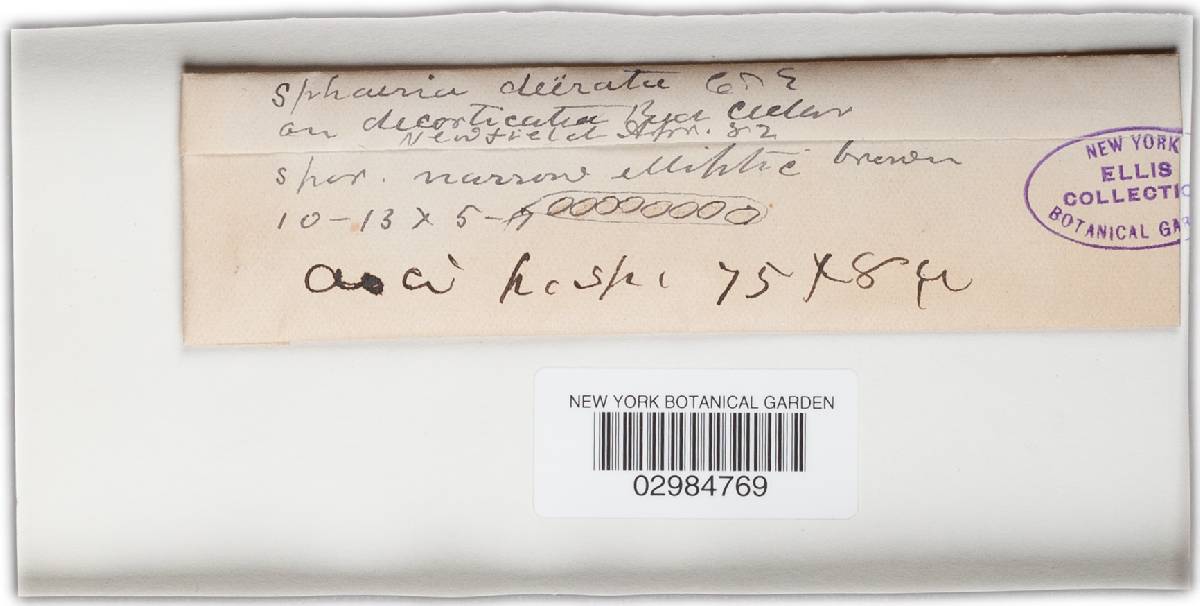 Sphaeria deërata C & E
on decorticated Red Cedar
Newfield Apr. 82
spor. narrow elliptic brown
10-13 X 5-
asci p. sp. 75 X 8 µ
NEW YORK
ELLIS
COLLECTIO
BOTANICAL GAR
NEW YORK BOTANICAL GARDEN
02984769